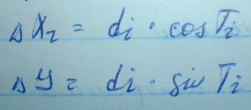 Δ X₂ = di · cos Ti
Δ Y = di · sin Ti